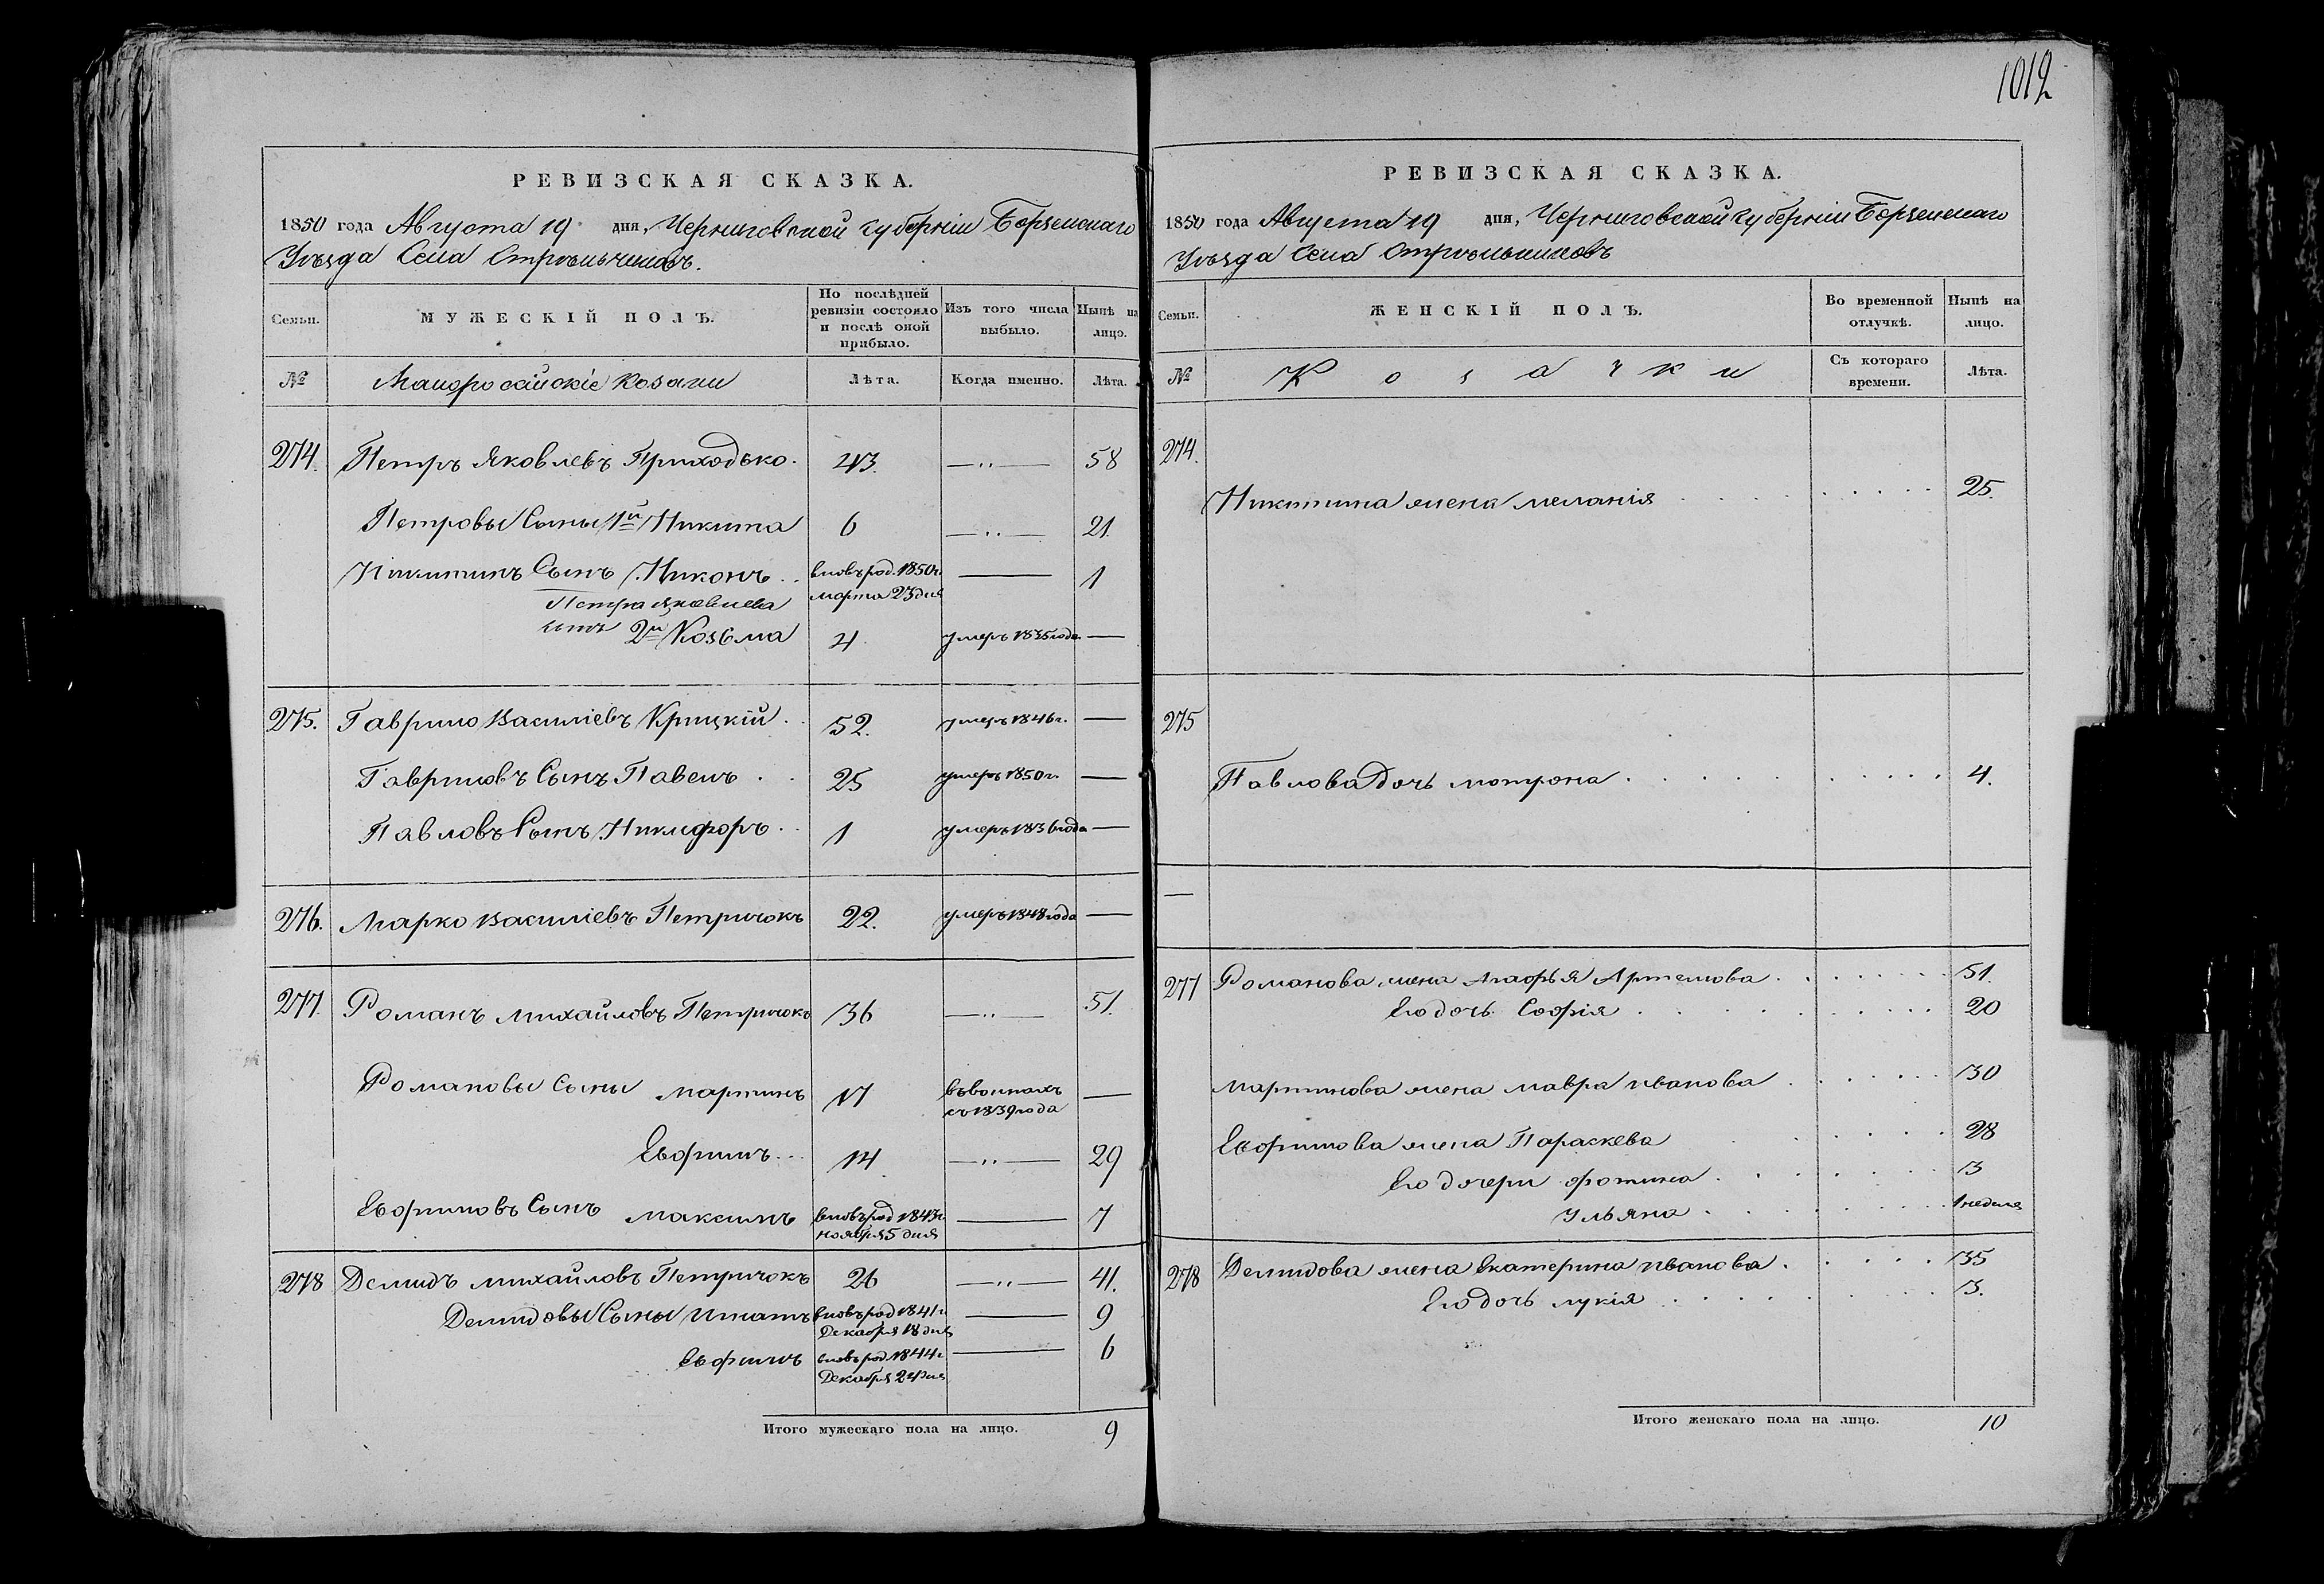 1012
РЕВИЗСКАЯ СКАЗКА.
1850 года Августа 19 дня, Черниговской губерніи Борзенскаго
Уѣзда Села Стрѣльниковъ.
Семьи. МУЖЕСКІЙ ПОЛЪ. По послѣдней ревизіи состояло и послѣ оной прибыло. Изъ того числа выбыло. Нынѣ на лицо.
№ Малороссійскіе Козаки Лѣта. Когда именно. Лѣта.
274. Петръ Яковлевъ Приходько. 43. —"— 58
Петровы Сыны 1й Никита 6 —"— 21.
Никитинъ Сынъ Никонъ.. вновь род. 1850 г. марта 23 дня — 1
Петра Яковлева
сынъ 2й Козьма 4 умеръ 1835 года —
275. Гаврило Василіевъ Крицкій.. 52. умеръ 1846 г. —
Гавриловъ Сынъ Павелъ.. 25 умеръ 1850 г. —
Павловъ Сынъ Никифоръ.. 1 умеръ 1836 года —
276. Марко Василіевъ Петричокъ 22. умеръ 1848 года —
277. Романъ Михайловъ Петричокъ 36 —"— 51.
Романовы Сыны Мартинъ 17 въ воинахъ съ 1839 года —
Евфимъ... 14 —"— 29
Евфимовъ Сынъ Максимъ вновь род 1843 г. ноября 5 дня — 7
278 Демидъ Михайловъ Петричокъ 26 —"— 41.
Демидовы Сыны Игнатъ вновь род 1841 г. Декабря 18 дня — 9
Евфимъ вновь род 1844 г. Декабря 24 дня — 6
Итого мужескаго пола на лицо. 9
РЕВИЗСКАЯ СКАЗКА.
1850 года Августа 19 дня, Черниговской губерніи Борзенскаго
Уѣзда Села Стрѣльниковъ
Семьи. ЖЕНСКІЙ ПОЛЪ. Во временной отлучкѣ. Нынѣ на лицо.
№ Козачки Съ котораго времени. Лѣта.
274.
Никитина жена Меланія 25.
275
Павлова Дочь Мотрона 4.
—
277 Романова жена Марфья Артемова 51.
Его дочь Софія 20
Мартинова жена Мавра Иванова 30
Евфимова жена Параскева 28
Его дочери Фотина 3
Ульяна 1 неделя
278 Демидова жена Екатерина Иванова 35
Его дочь Лукія 3.
Итого женскаго пола на лицо. 10